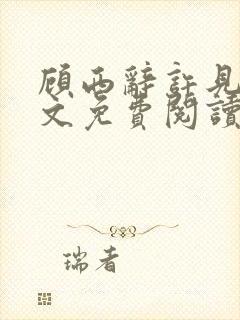 顾西辭許見
文免費閱讀
瑞者